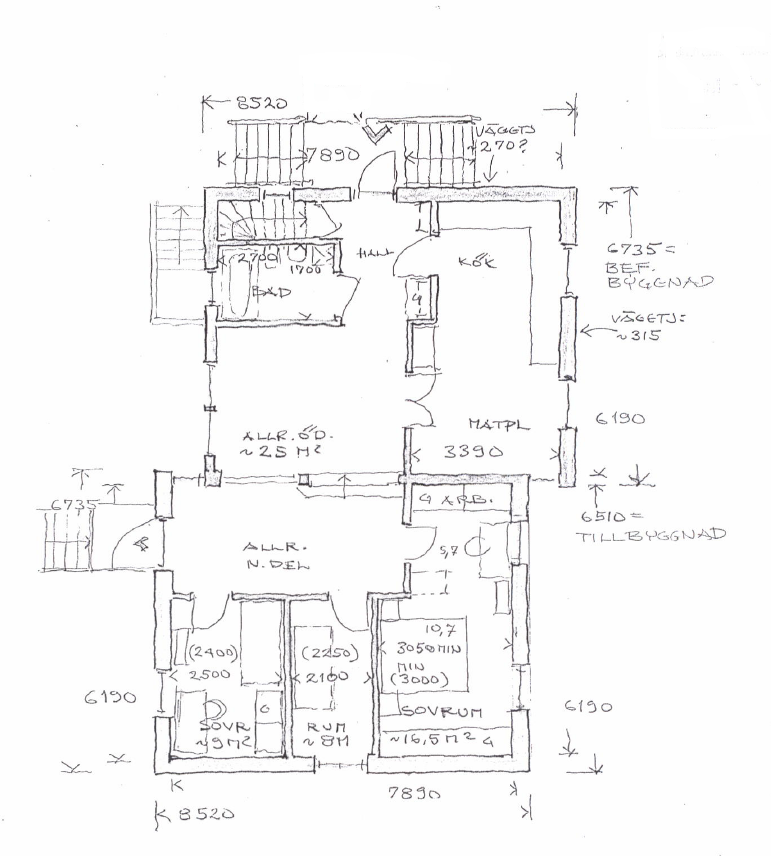 8520
VÄGGTJ
~270?
7890
6735 =
BEF.
BYGGNAD
HALL
KÖK
2700
1700
BAD
G
VÄGGTJ:
~315
MATPL
6190
ALLR. ÖD.
~25 M²
3390
6735
G ARB.
6510 =
TILLBYGGNAD
5,7
ALLR.
N. DEL
10,7
(2400)
2500
(2250)
2100
3050 MIN
MIN
(3000)
6190
G
SOVRUM
6190
SOVR
~9M²
RUM
~8M
~16,5 M²
G
7890
8520